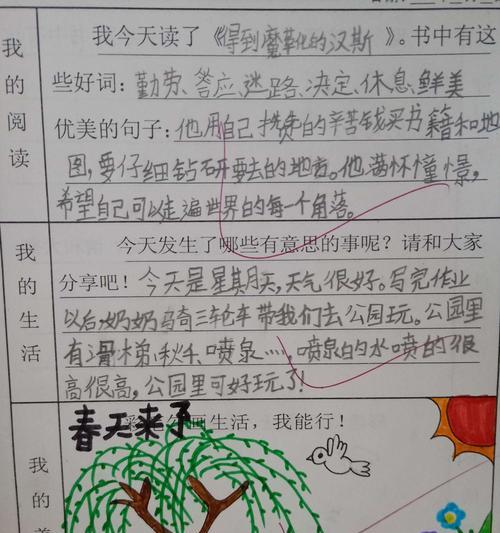 我的阅读
我今天读了《得到魔靴的汉斯》。书中有这
些好词：勤劳、答应、迷路、决定、休息、鲜美
优美的句子：他用自己挣的辛苦钱买书籍和地
图，要仔细钻研要去的地方。他满怀憧憬，
希望自己可以走遍世界的每一个角落。
我的生活
今天发生了哪些有意思的事呢？请和大家
分享吧！今天是星期天，天气很好。写完作业
以后，奶奶骑三轮车带我们去公园玩。公园里
有滑梯、秋千、喷泉……，喷泉的水喷的很
高很高，公园里可好玩了！
我的美
春天来了
彩色绘画生活，我能行！